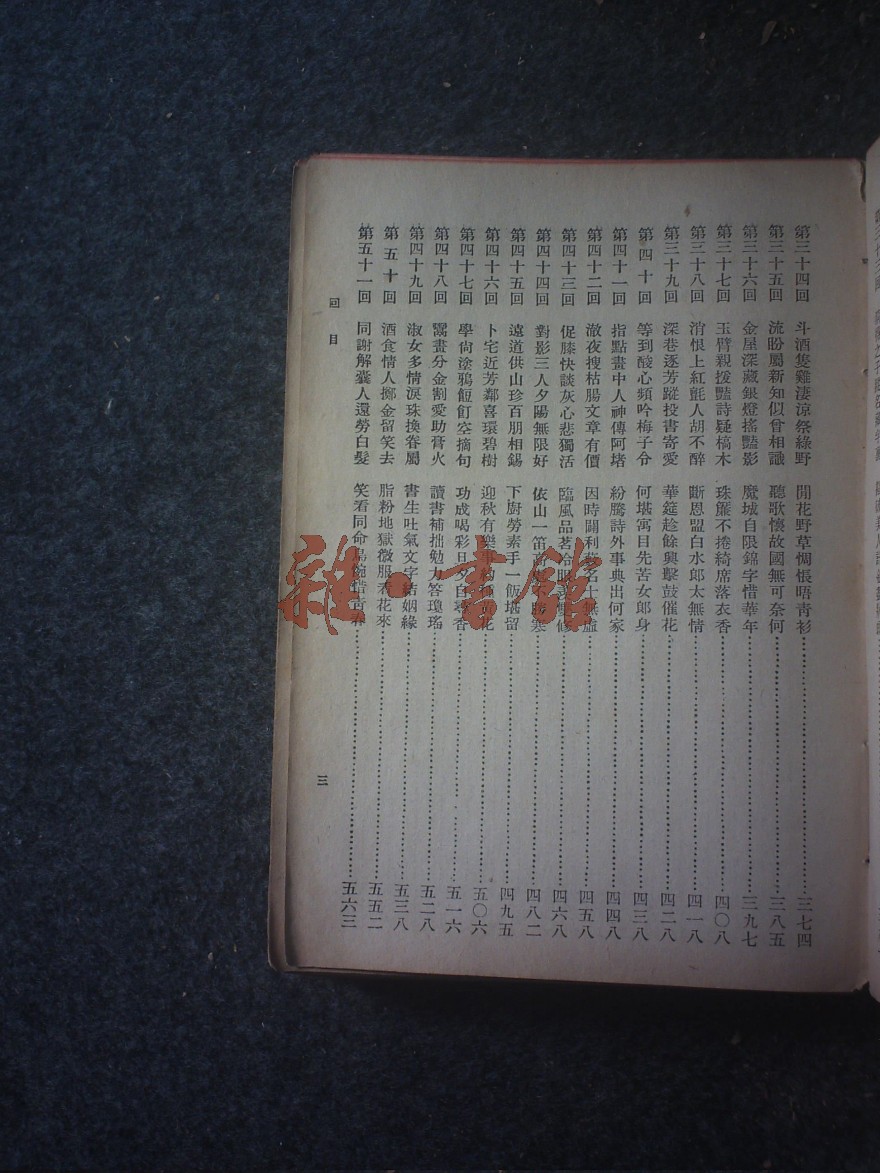 第三十四回 斗酒隻雞淒涼祭綠野 閒花野草惆悵晤青衫 三七四
第三十五回 流盼屬新知似曾相識 聽歌懷故國無可奈何 三八五
第三十六回 金屋深藏銀燈搖豔影 魔城自限錦字惜華年 三九七
第三十七回 玉臂親援豔詩疑槁木 珠簾不捲綺席落衣香 四〇八
第三十八回 消恨上紅氈人胡不醉 斷恩盟白水郎太無情 四一八
第三十九回 深巷逐芳蹤投書寄愛 華筵趁餘興擊鼓催花 四二八
第四十回 等到酸心頻吟梅子令 何堪寓目先苦女郎身 四三八
第四十一回 指點畫中人神傳阿堵 紛騰詩外事典出何家 四四八
第四十二回 澈夜搜枯腸文章有價 因時關利害名士無虛 四五八
第四十三回 促膝快談灰心悲獨活 臨風品茗冷眼 修 四六八
第四十四回 對影三人夕陽無限好 依山一笛高 不勝寒 四八二
第四十五回 遠道供山珍百朋相錫 下廚勞素手一飯堪留 四九五
第四十六回 卜宅近芳鄰喜環碧樹 迎秋有樂事 種黃花 五〇六
第四十七回 學尙塗鴉飣飣空摘句 功成喝彩日夕自尋香 五一六
第四十八回 鬻畫分金割愛助膏火 讀書補拙勉力答瓊瑤 五二八
第四十九回 淑女多情淚珠換眷屬 書生吐氣文字結姻緣 五三八
第五十回 酒食情人擲金留笑去 脂粉地獄微服看花來 五五二
第五十一回 同謝解囊人還勞白髮 笑看同命鳥惋惜青春 五六三
回目
三
雜·書館